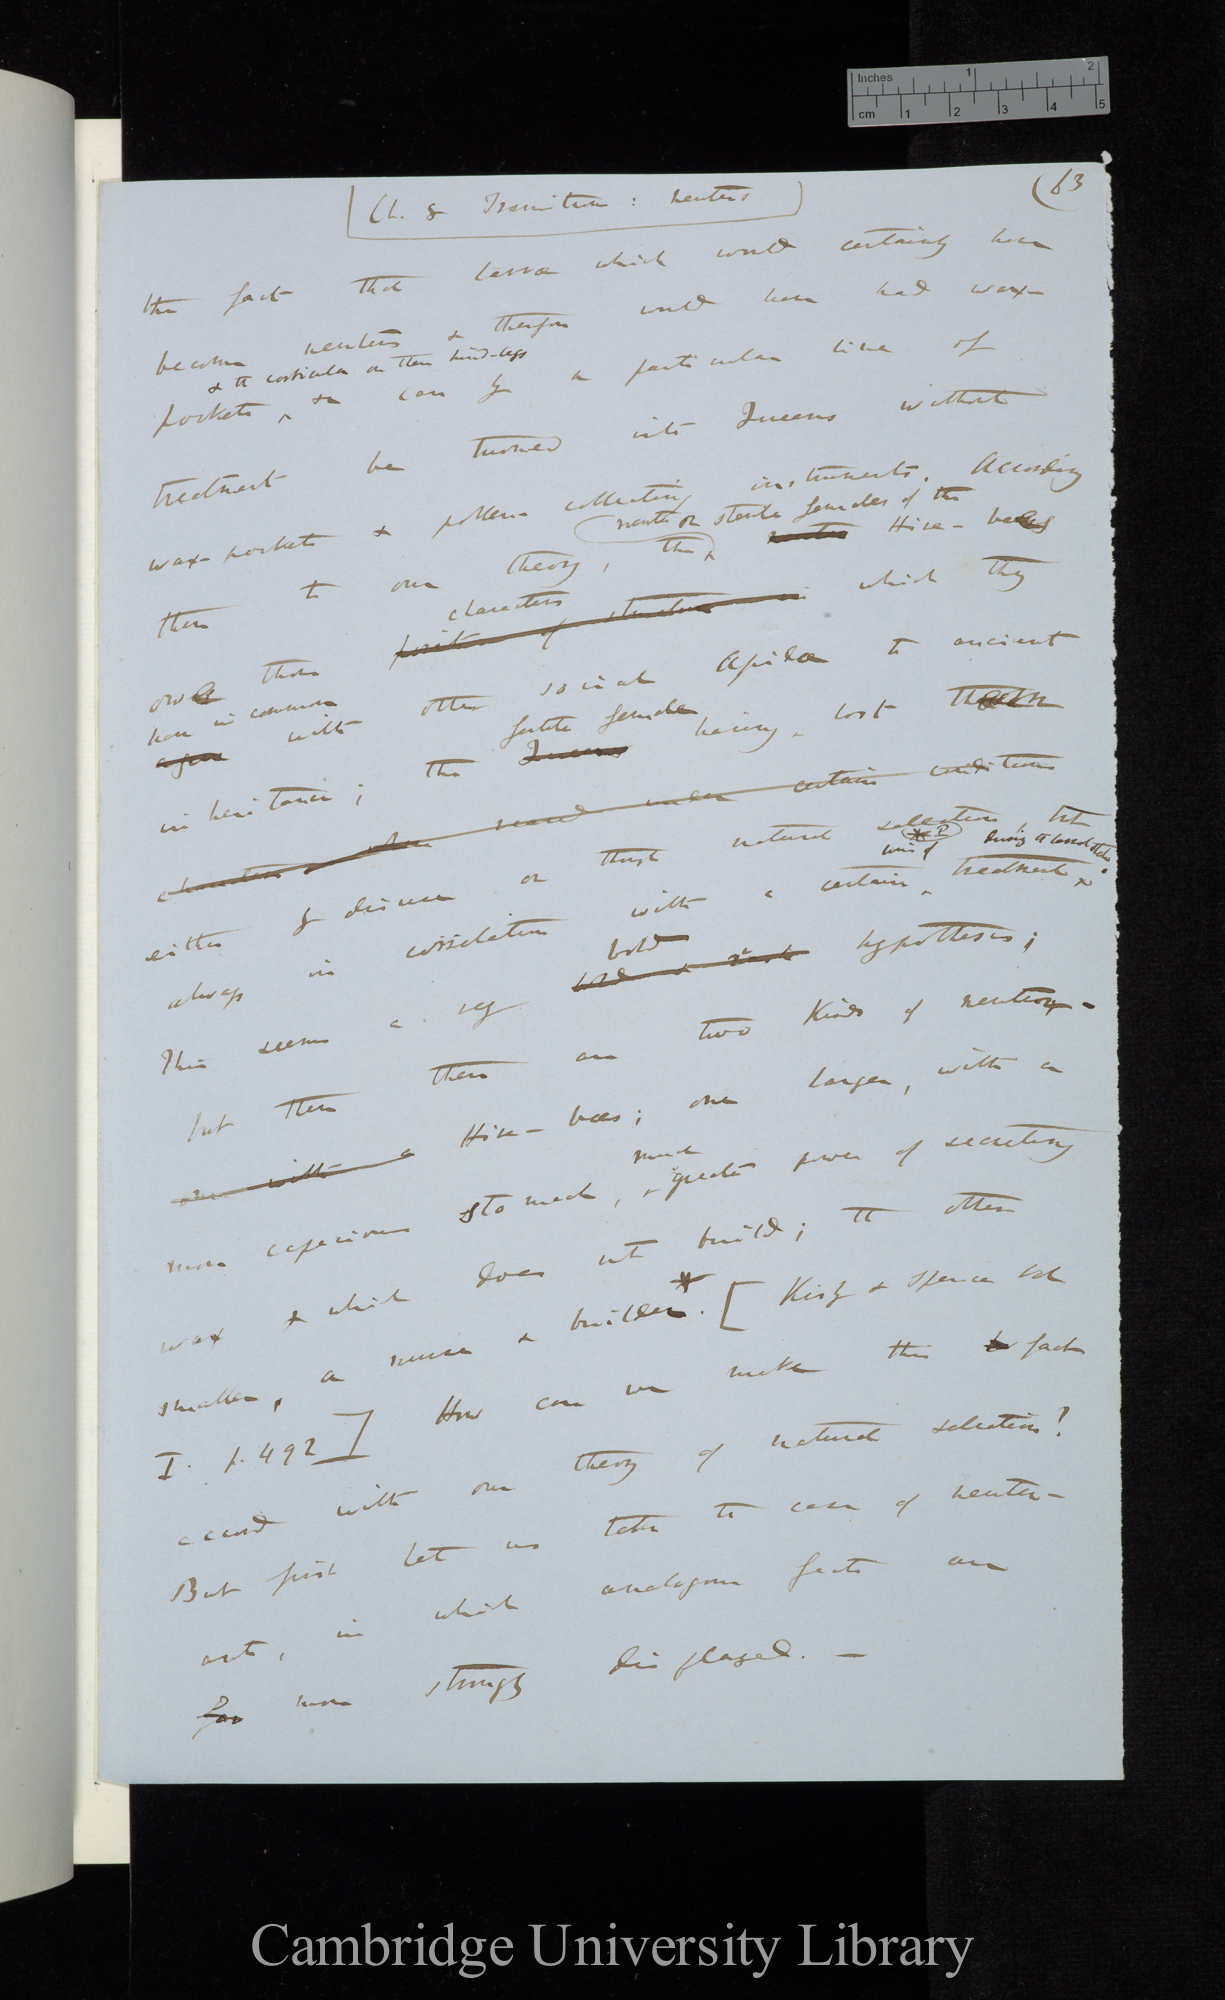 Inches 1 2
cm 1 2 3 4 5
(63
Ch. 8 Transition: neuters
the fact that larvæ which would certainly have
become neuters & therefore would have had wax-
& the corbicula on their hind-legs
pockets, &c can by a particular line of
treatment be turned into Queens without
wax-pockets & pollen collecting instruments. According
neuter or sterile females of the
then to our theory, the neuter Hive-bees
characters
owe those position of structure in which they
have in common
agree with other social Apidæ to ancient
fertile female
inheritance; the Queens having lost them
characters when reared under certain conditions
either by disuse or though natural selection, but
line of during the larval state
always in correlation with a certain treatment.
bold
This seems a very bold & rash hypothesis;
but then there are two kinds of neuter-
one with a Hive-bees; one larger, with a
much
more capacious stomach, & greater power of secreting
wax & which does not build; the other
smaller, a nurse & builder*. [Kirby & Spence vol
I. p. 492] How can we make this fact
accord with our theory of natural selection?
But first let us take the case of neuter-
ants, in which analogous facts are
far more strongly displayed. —
Cambridge University Library